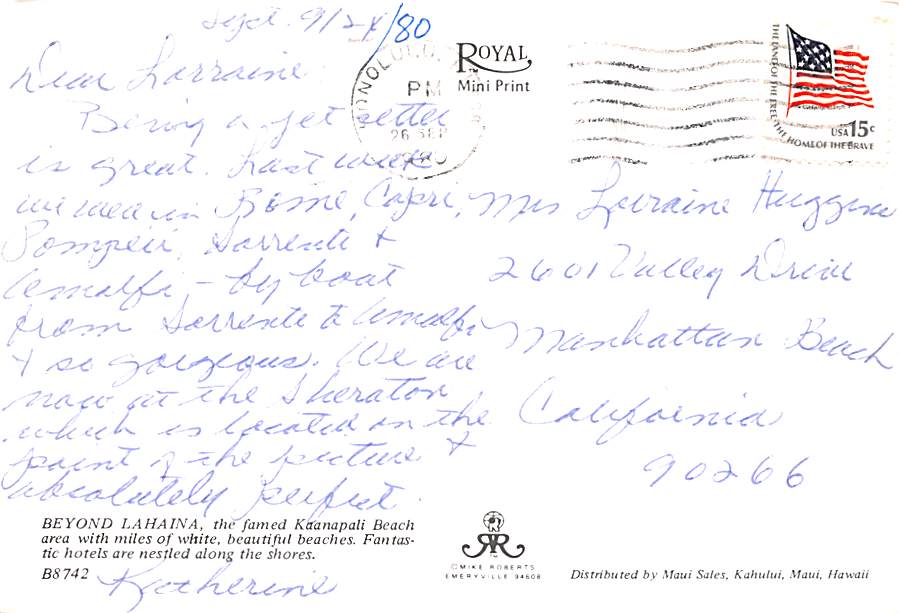 Sept. 9/24/80
Dear Lorraine
Being a jet setter
is great. Last week
we were in Rome, Capri,
Pompeii, Sorrento &
Amalfi, – by boat
from Sorrento to Amalfi
& so gorgeous. We are
now at the Sheraton
which is located on the
point of the picture &
absolutely perfect.
Katherine
ROYAL
Mini Print
HONOLULU
PM
26 SEP
THE LAND OF THE FREE · THE HOME OF THE BRAVE
USA 15c
Mrs Lorraine Huggins
2601 Valley Drive
Manhattan Beach
California
90266
BEYOND LAHAINA, the famed Kaanapali Beach
area with miles of white, beautiful beaches. Fantas-
tic hotels are nestled along the shores.
B8742
©MIKE ROBERTS
EMERYVILLE 94608
Distributed by Maui Sales, Kahului, Maui, Hawaii